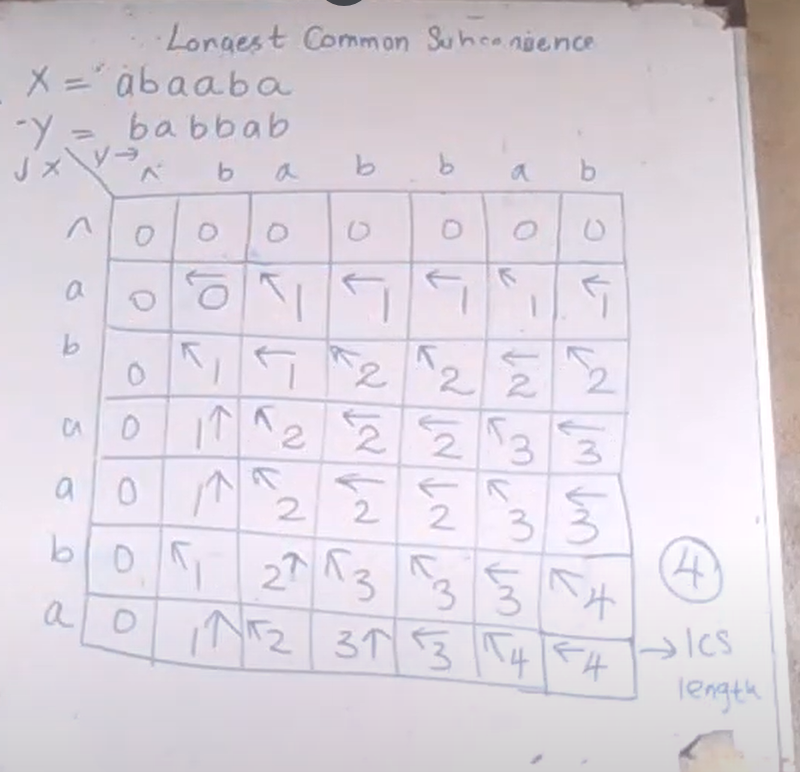 Longest Common Subsequence
X = abaaba
Y = babbab
↓ X \ Y → ^ b a b b a b
^ 0 0 0 0 0 0 0
a 0 ←0 ↖1 ←1 ←1 ↖1 ←1
b 0 ↖1 ←1 ↖2 ↖2 ←2 ↖2
a 0 1↑ ↖2 ←2 ←2 ↖3 ←3
a 0 1↑ ↖2 ←2 ←2 ↖3 ←3
b 0 ↖1 2↑ ↖3 ↖3 ←3 ↖4 4
a 0 1↑ ↖2 3↑ ←3 ↖4 ←4 → lCS
length